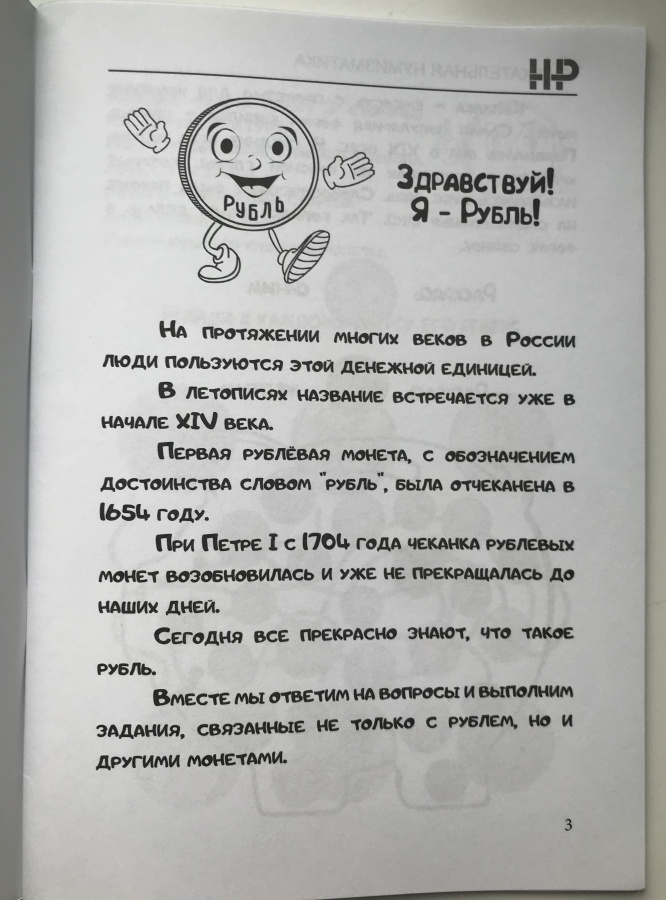 НР
РУБЛЬ
Здравствуй!
Я - Рубль!
На протяжении многих веков в России
люди пользуются этой денежной единицей.
В летописях название встречается уже в
начале XIV века.
Первая рублёвая монета, с обозначением
достоинства словом "рубль", была отчеканена в
1654 году.
При Петре I с 1704 года чеканка рублевых
монет возобновилась и уже не прекращалась до
наших дней.
Сегодня все прекрасно знают, что такое
рубль.
Вместе мы ответим на вопросы и выполним
задания, связанные не только с рублем, но и
другими монетами.
3